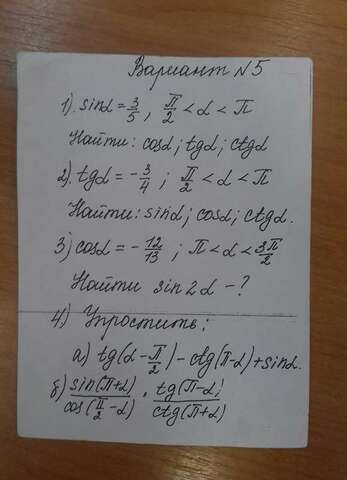 Вариант N5
1). sinα = 3/5 ; π/2 < α < π
Найти: cosα ; tgα ; ctgα
2). tgα = - 3/4 ; π/2 < α < π
Найти: sinα ; cosα ; ctgα.
3) cosα = - 12/13 ; π < α < 3π/2
Найти sin2α - ?
4) Упростить:
а) tg(α - π/2) - ctg(π-α) + sinα.
б) sin(π+α)/cos(π/2 - α) · tg(π-α)/ctg(π+α)